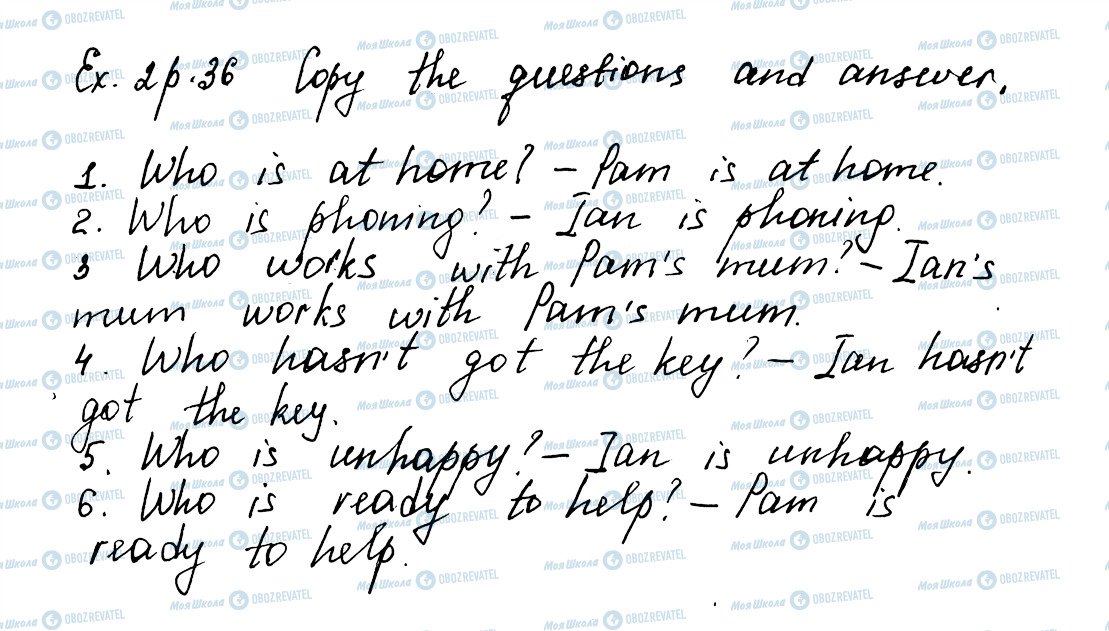 Ex. 2 p. 36 Copy the questions and answer.
1. Who is at home? – Pam is at home.
2. Who is phoning? – Ian is phoning.
3 Who works with Pam's mum? – Ian's
mum works with Pam's mum.
4. Who hasn't got the key? – Ian hasn't
got the key.
5. Who is unhappy? – Ian is unhappy.
6. Who is ready to help? – Pam is
ready to help.